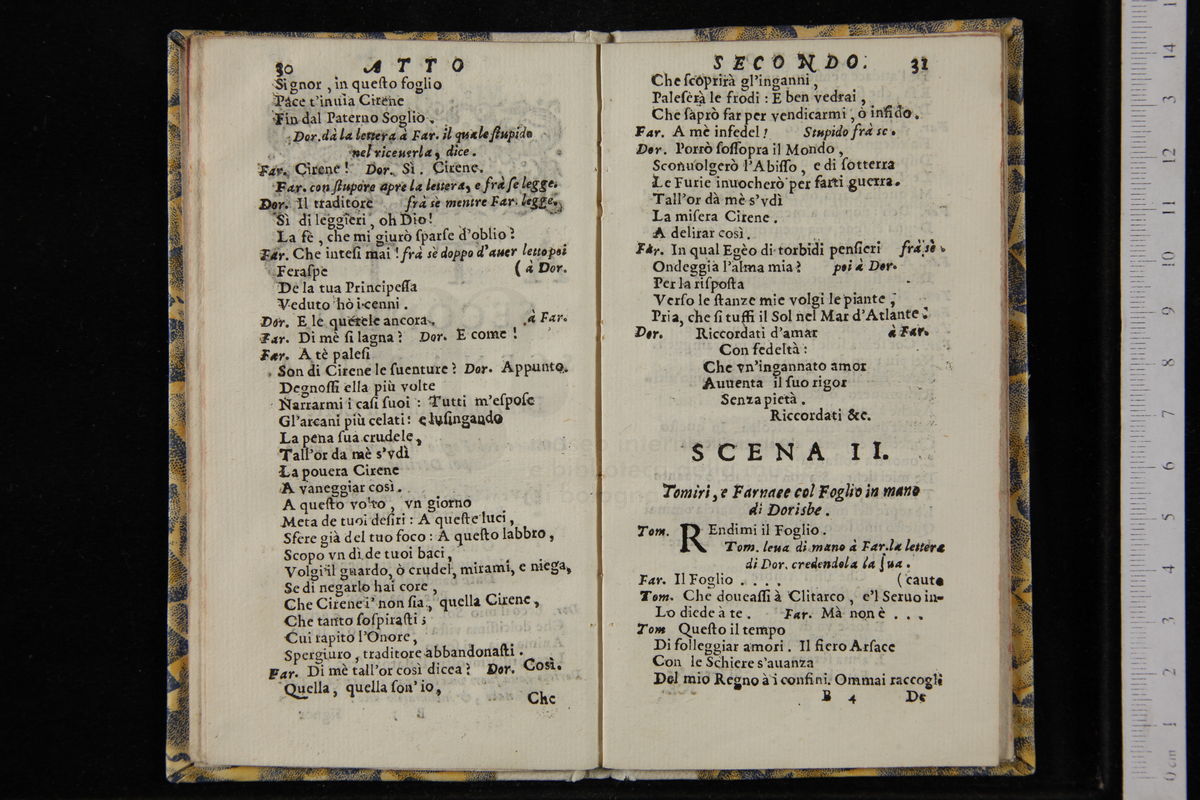 30 ATTO
Signor, in queſto foglio
Pace t'inuia Cirene
Fin dal Paterno Soglio.
Dor. dà la lettera à Far. il quale ſtupido
nel riceuerla, dice.
Far. Cirene! Dor. Sì. Cirene.
Far. con ſtupore apre la lettera, e frà ſe legge.
Dor. Il traditore frà sè mentre Far. legge.
Sì di leggieri, oh Dio!
La fè, che mi giurò ſparſe d'oblio?
Far. Che inteſi mai! frà sè doppo d'auer letto poi
Feraſpe (à Dor.
De la tua Principeſſa
Veduto hò i cenni.
Dor. E le querele ancora. à Far.
Far. Di mè ſi lagna? Dor. E come!
Far. A tè paleſi
Son di Cirene le ſuenture? Dor. Appunto.
Degnoſſi ella più volte
Narrarmi i caſi ſuoi: Tutti m'eſpoſe
Gl'arcani più celati: e luſingando
La pena ſua crudele,
Tall'or da mè s'vdì
La pouera Cirene
A vaneggiar così.
A queſto volto, vn giorno
Meta de tuoi deſiri: A queſte luci,
Sfere già del tuo foco: A queſto labbro,
Scopo vn dì de tuoi baci,
Volgi il guardo, ò crudel, mirami, e niega,
Se di negarlo hai core,
Che Cirene i' non ſia, quella Cirene,
Che tanto ſoſpiraſti;
Cui rapito l'Onore,
Spergiuro, traditore abbandonaſti.
Far. Di mè tall'or così dicea? Dor. Così.
Quella, quella ſon' io,
Che
SECONDO. 31
Che ſcoprirà gl'inganni,
Paleſerà le frodi: E ben vedrai,
Che ſaprò far per vendicarmi, ò infido.
Far. A mè infedel! Stupido frà se.
Dor. Porrò ſoſſopra il Mondo,
Sconuolgerò l'Abiſſo, e di ſotterra
Le Furie inuocherò per farti guerra.
Tall'or dà mè s'vdì
La miſera Cirene.
A delirar così.
Far. In qual Egèo di torbidi penſieri frà sè.
Ondeggia l'alma mia? poi à Dor.
Per la riſpoſta
Verſo le ſtanze mie volgi le piante,
Pria, che ſi tuffi il Sol nel Mar d'Atlante.
Dor. Riccordati d'amar à Far.
Con fedeltà:
Che vn'ingannato amor
Auuenta il ſuo rigor
Senza pietà.
Riccordati &c.
SCENA II.
Tomiri, e Farnace col Foglio in mano
di Dorisbe.
Tom. REndimi il Foglio.
Tom. leua di mano à Far. la lettera
di Dor. credendola la ſua.
Far. Il Foglio . . . . (cauto
Tom. Che doueaſſi à Clitarco, e'l Seruo in-
Lo diede à te. Far. Mà non è . . .
Tom Queſto il tempo
Di folleggiar amori. Il fiero Arſace
Con le Schiere s'auanza
Del mio Regno à i confini. Ommai raccogli
B 4 De